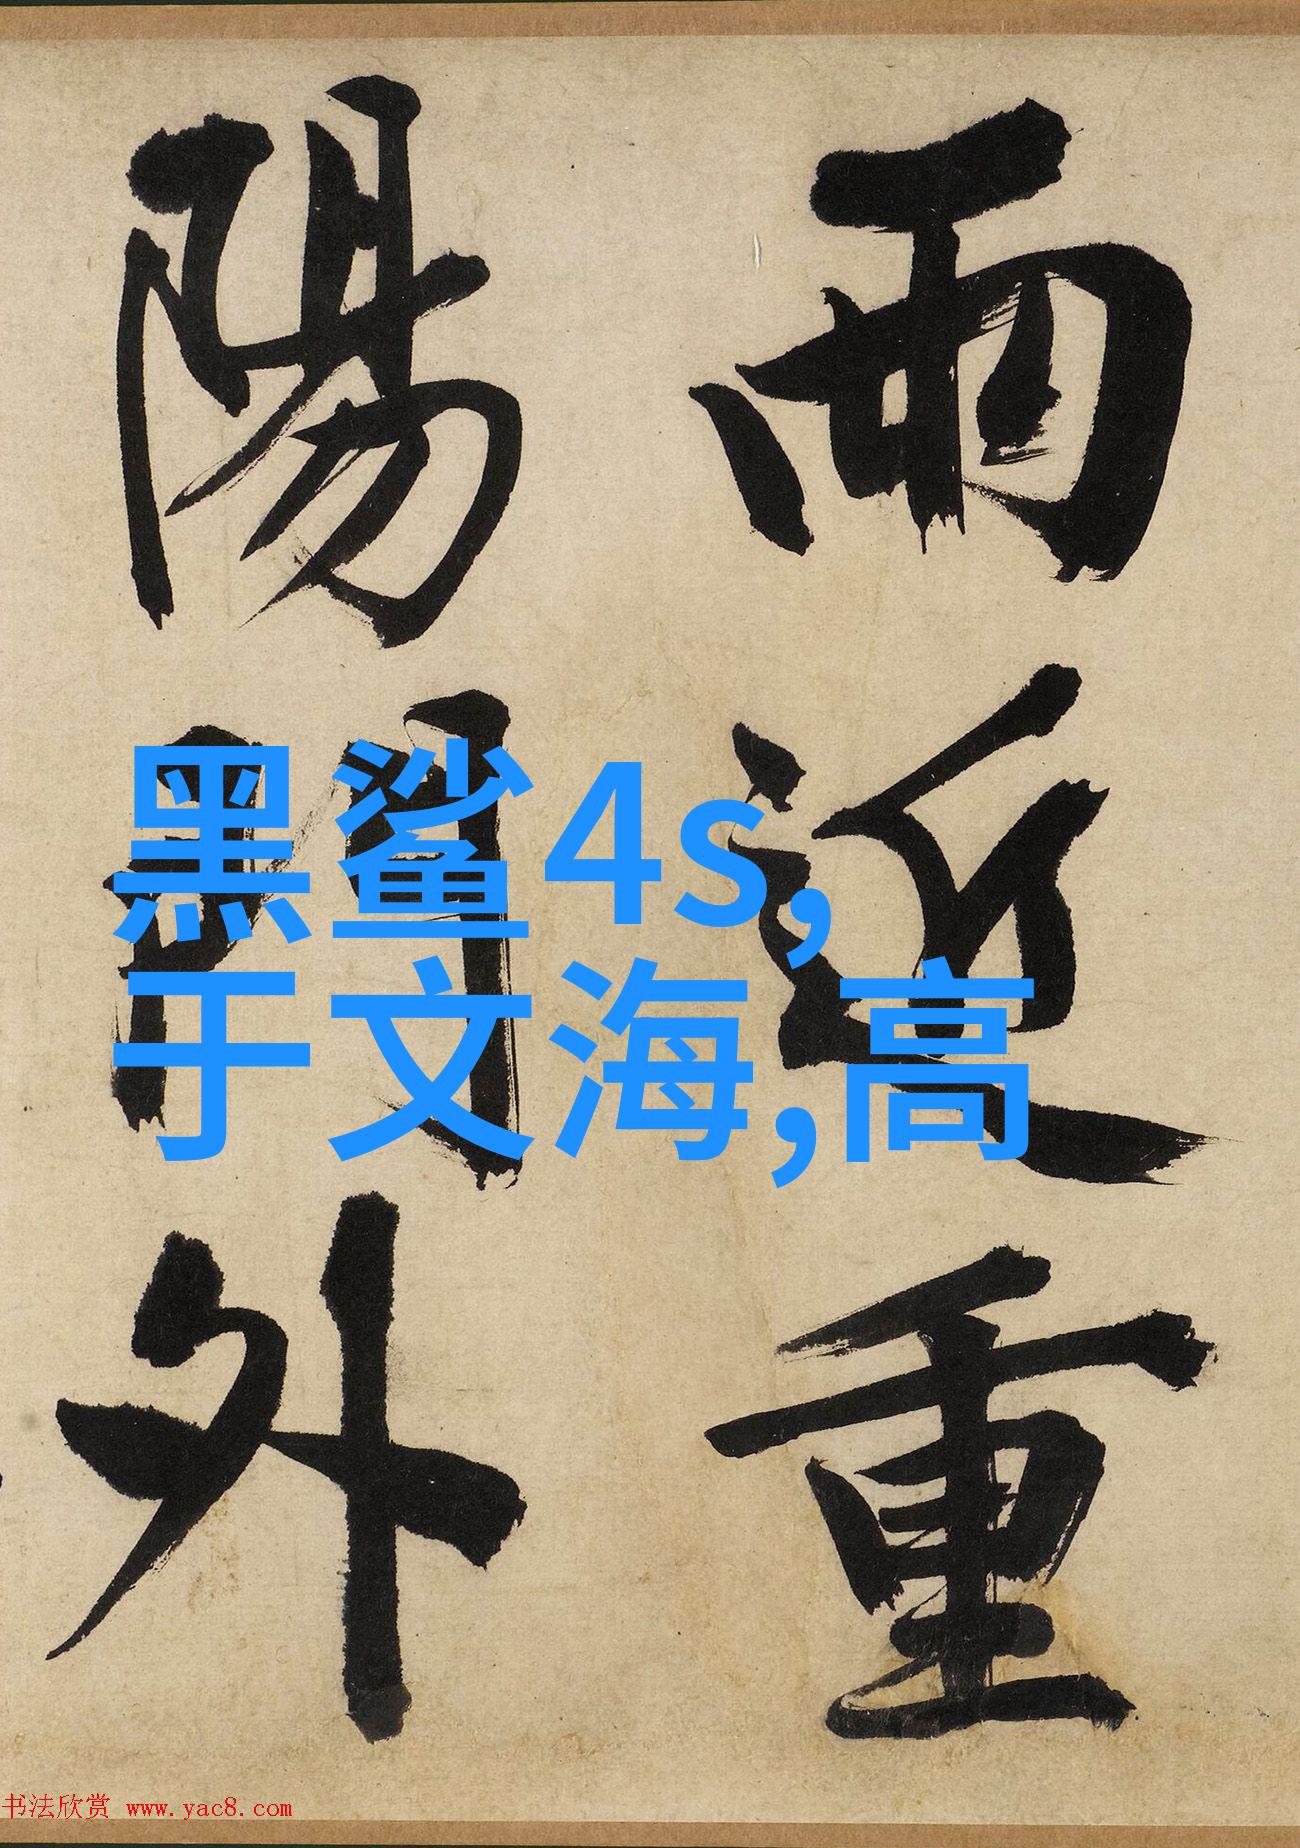 雨近重
陽門外
黑鲨4s,
于文海,高
书法欣赏 www.yac8.com